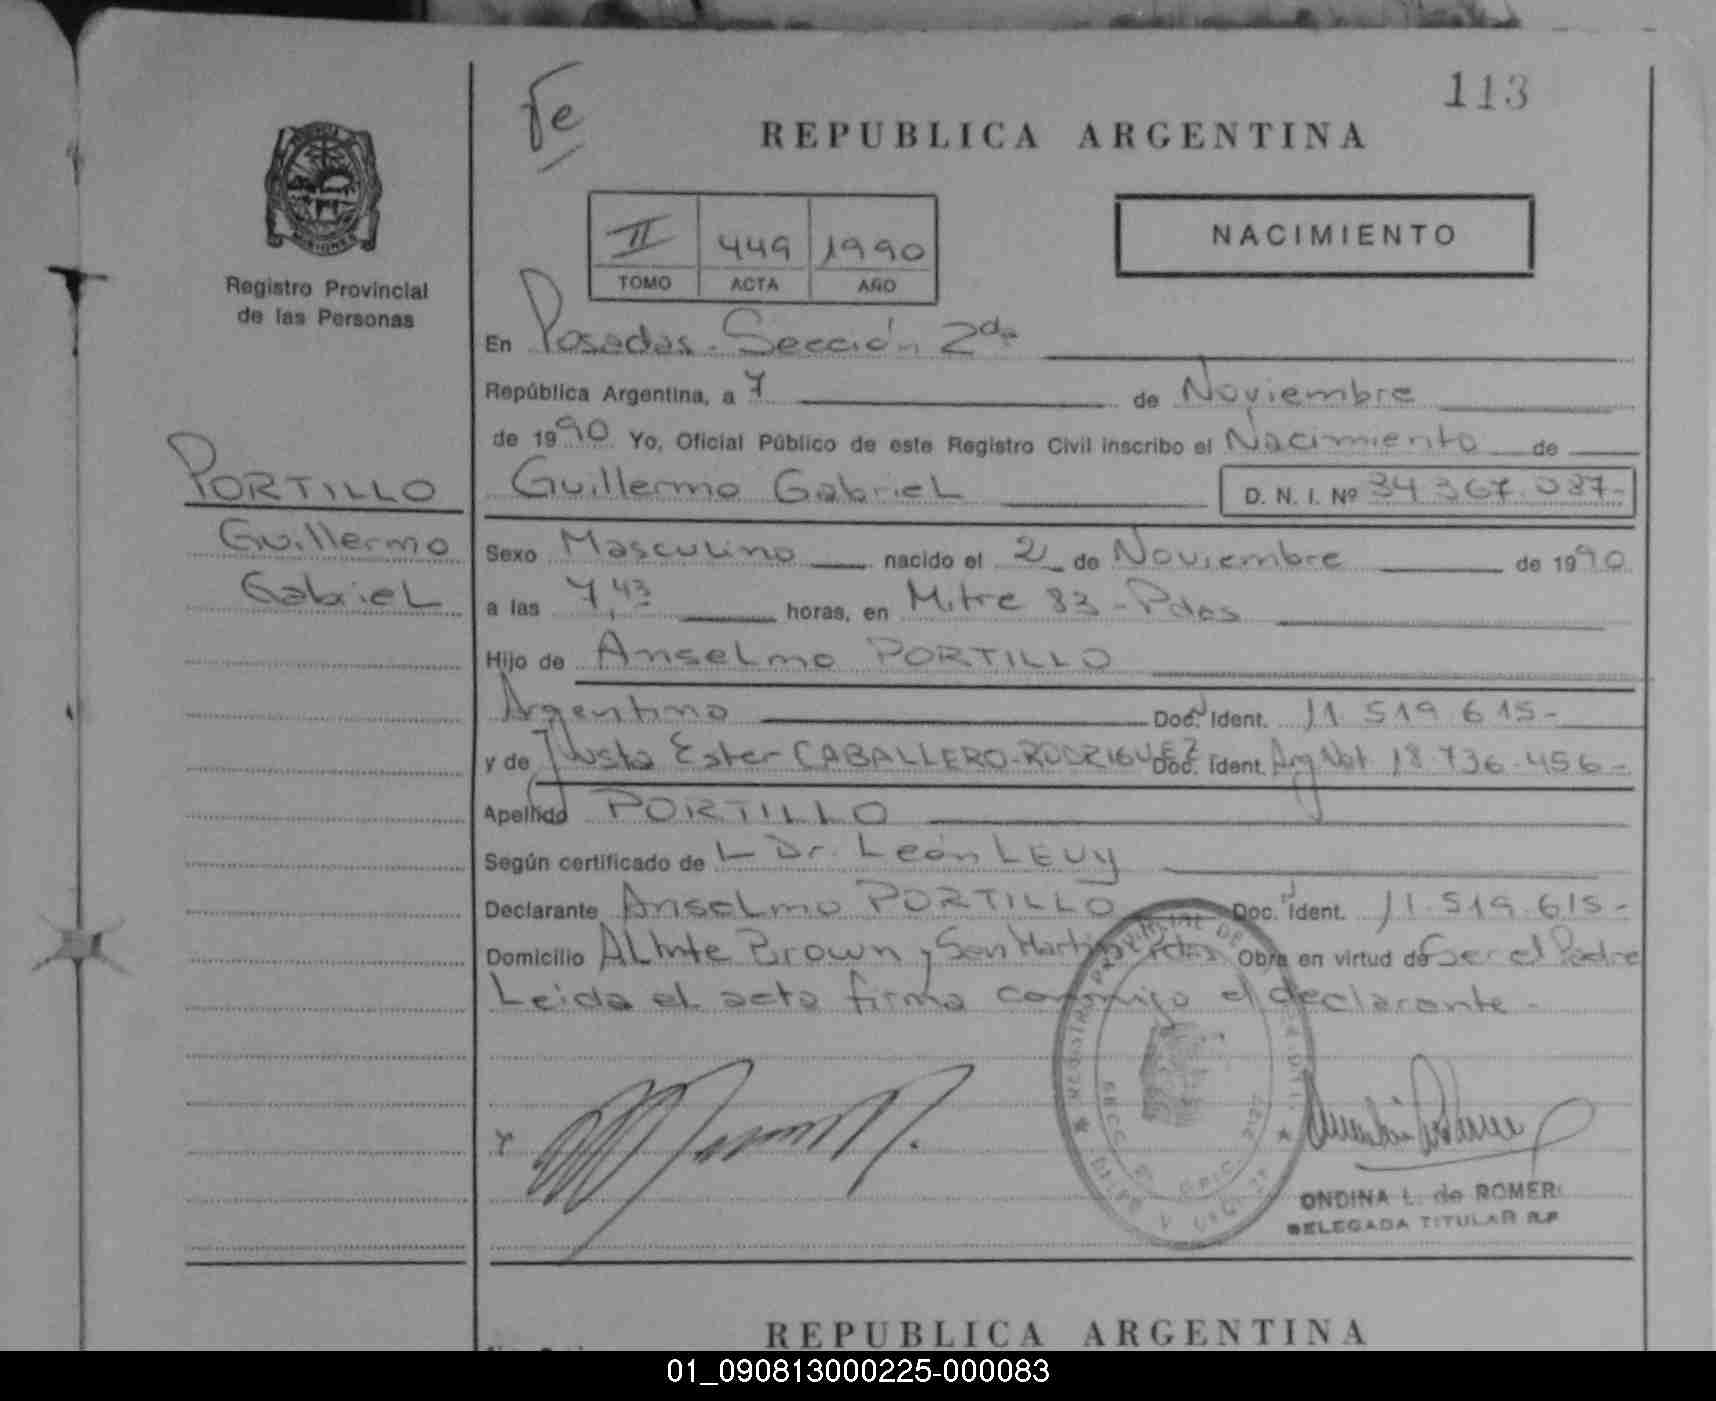 113
Fe
REPUBLICA ARGENTINA
MISIONES
Registro Provincial
de las Personas
II 449 1990
TOMO ACTA AÑO
NACIMIENTO
En Posadas - Sección 2da
República Argentina, a 7 de Noviembre
de 1990 Yo, Oficial Público de este Registro Civil inscribo el Nacimiento de
PORTILLO
Guillermo
Gabriel
Guillermo Gabriel D. N. I. Nº 34.367.037-
Sexo Masculino nacido el 2 de Noviembre de 1990
a las 7,43 horas, en Mitre 83 - Pdas
Hijo de Anselmo PORTILLO
Argentino Doc. Ident. 11.519.615-
y de Justa Ester CABALLERO-RODRIGUEZ Doc. Ident. Arg Nat 18.736.456-
Apellido PORTILLO
Según certificado de L Dr. León LEVY
Declarante Anselmo PORTILLO Doc. Ident. 11.519.615-
Domicilio ALMte Brown y San Martín Pdas Obra en virtud de Ser el Padre
Leida el acta firma conmigo el declarante-
ONDINA L. de ROMER
DELEGADA TITULAR R.P
REPUBLICA ARGENTINA
01_090813000225-000083